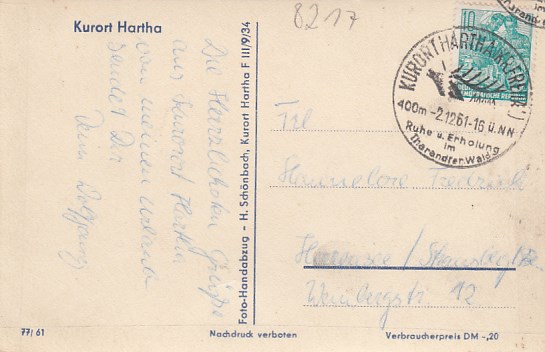 Kurort Hartha
8217
Die Herzlichsten Grüße
aus Kurort Hartha
von meinem Urlaub
sendet Dir
Dein Wolfgang
Foto-Handabzug - H. Schönbach, Kurort Hartha F III/9/34
10
KURORT HARTHA
400m -2.1261-16 ü.NN
Ruhe u. Erholung
im
Tharandter Wald
Hannelore
Weinbergstr. 12
77/61
Nachdruck verboten
Verbraucherpreis DM -,20